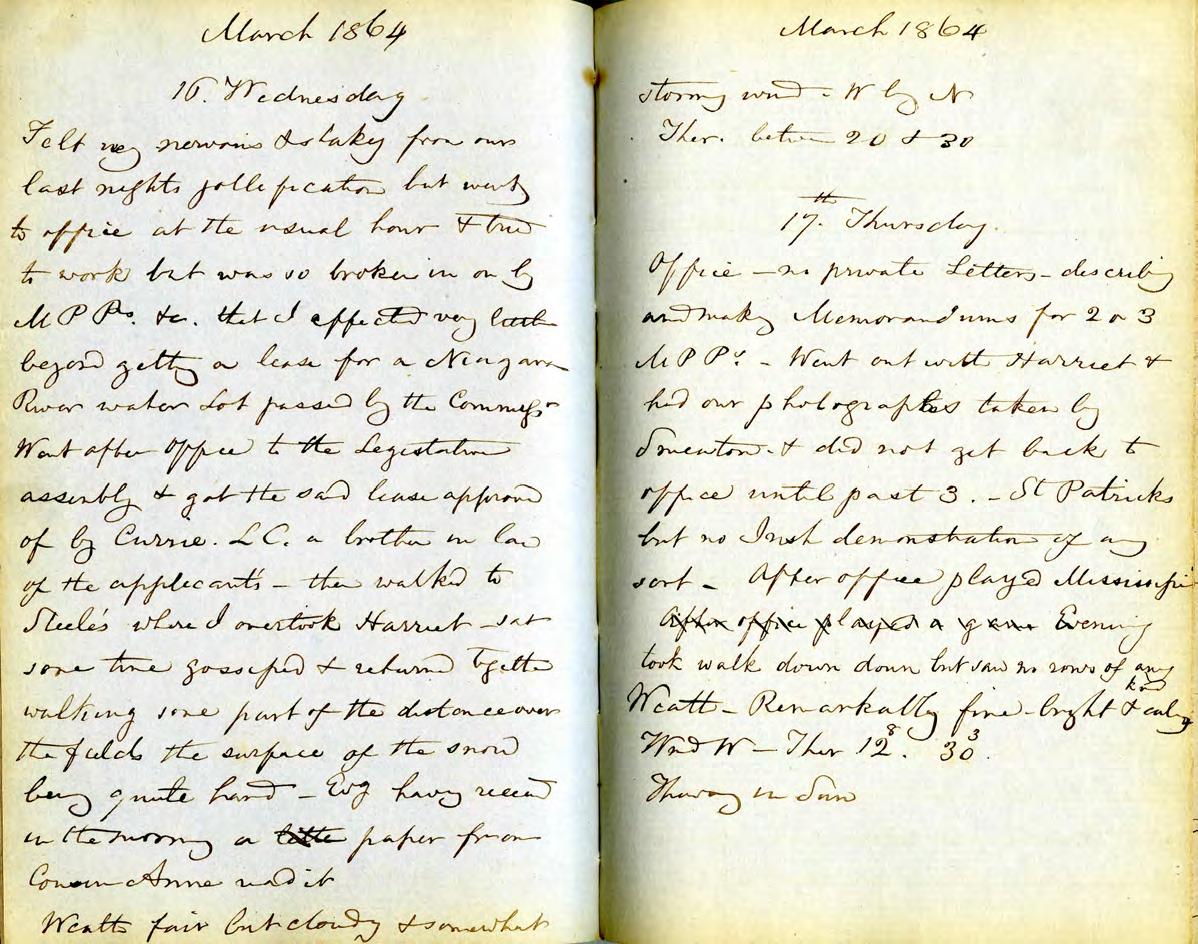 March 1864
16. Wednesday
Felt very nervous & shaky from our
last nights jollification but went
to office at the usual hour & tried
to work but was so broken in on by
M P Ps. &c. that I effected very little
beyond getting a lease for a Niagara
River water Lot passed by the Commissr
Went after office to the Legislative
assembly & got the said lease approved
of by Currie. L C. a brother in law
of the applicants – then walked to
Steele's where I overtook Harriet – sat
some time gossiped & returned together
walking some part of the distance over
the fields the surface of the snow
being quite hard – Evg having received
in the morning a little paper from
Cousin Anne read it
Weath fair but cloudy & somewhat
March 1864
stormy wind – W by N
Ther. between 20 & 30
17th. Thursday.
Office – no private Letters – describing
and making Memorandums for 2 or 3
M P Ps – Went out with Harriet &
had our photographs taken by
Smeaton – & did not get back to
office until past 3. – St Patricks
but no Irish demonstration of any
sort – After office played Mississipi
After office played a game Evening
took walk down down but saw no rows of any
kind
Weath – Remarkably fine – bright &
Wind W – Ther 12°8. 30°3.
Thawing in Sun